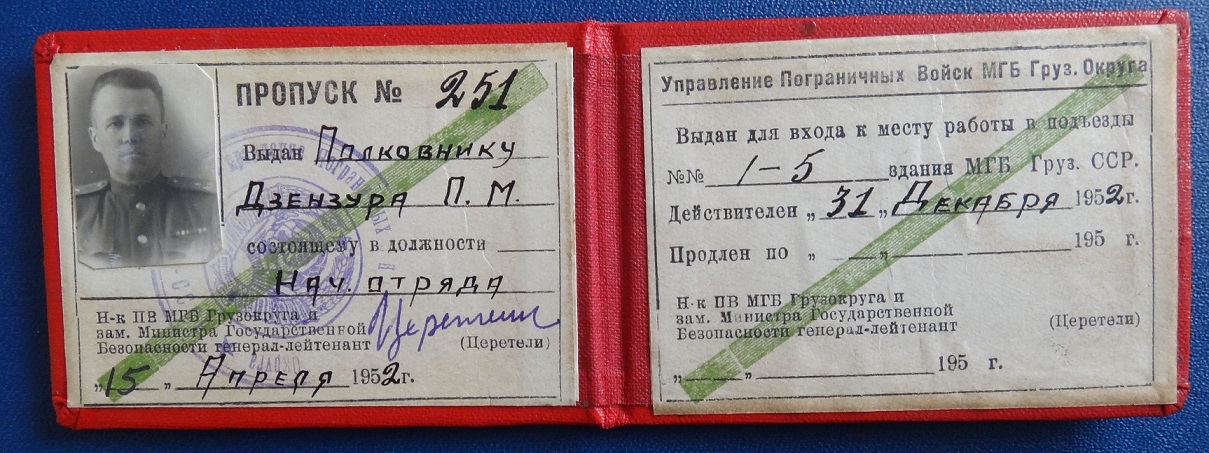 ПРОПУСК № 251
Выдан Полковнику
Дзензура П. М.
состоящему в должности
Нач. отряда
Н-к ПВ МГБ Грузокруга и
зам. Министра Государственной
Безопасности генерал-лейтенант (Церетели)
„15„ Апреля 1952г.
Управление Пограничных Войск МГБ Груз. Округа
Выдан для входа к месту работы в подъезды
№№ 1-5 здания МГБ Груз. ССР.
Действителен „31„ Декабря 1952г.
Продлен по „ „ 195 г.
Н-к ПВ МГБ Грузокруга и
зам. Министра Государственной
Безопасности генерал-лейтенант (Церетели)
„ „ 195 г.